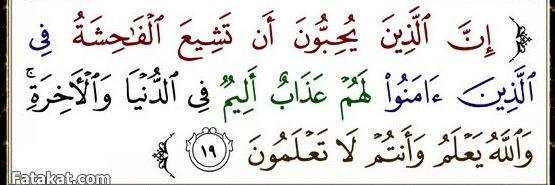 ﴿ إِنَّ ٱلَّذِينَ يُحِبُّونَ أَن تَشِيعَ ٱلْفَـٰحِشَةُ فِى
ٱلَّذِينَ ءَامَنُوا۟ لَهُمْ عَذَابٌ أَلِيمٌ فِى ٱلدُّنْيَا وَٱلْـَٔاخِرَةِ ۚ
وَٱللَّهُ يَعْلَمُ وَأَنتُمْ لَا تَعْلَمُونَ ١٩ ﴾
Fatakat.com